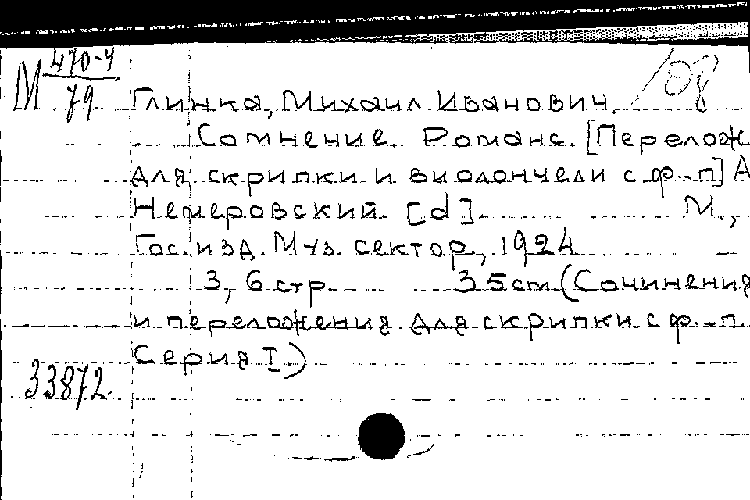 М 470-4
79
108
Глинка, Михаил Иванович.
Сомнение. Романс. [Перелож
для скрипки и виолончели с ф-п] А
Немеровский. [d] М.,
Гос. изд. Муз. сектор, 1924
3, 6 стр 35 cm (Сочинения
и переложения для скрипки с ф.-п.
Серия I)
33872.